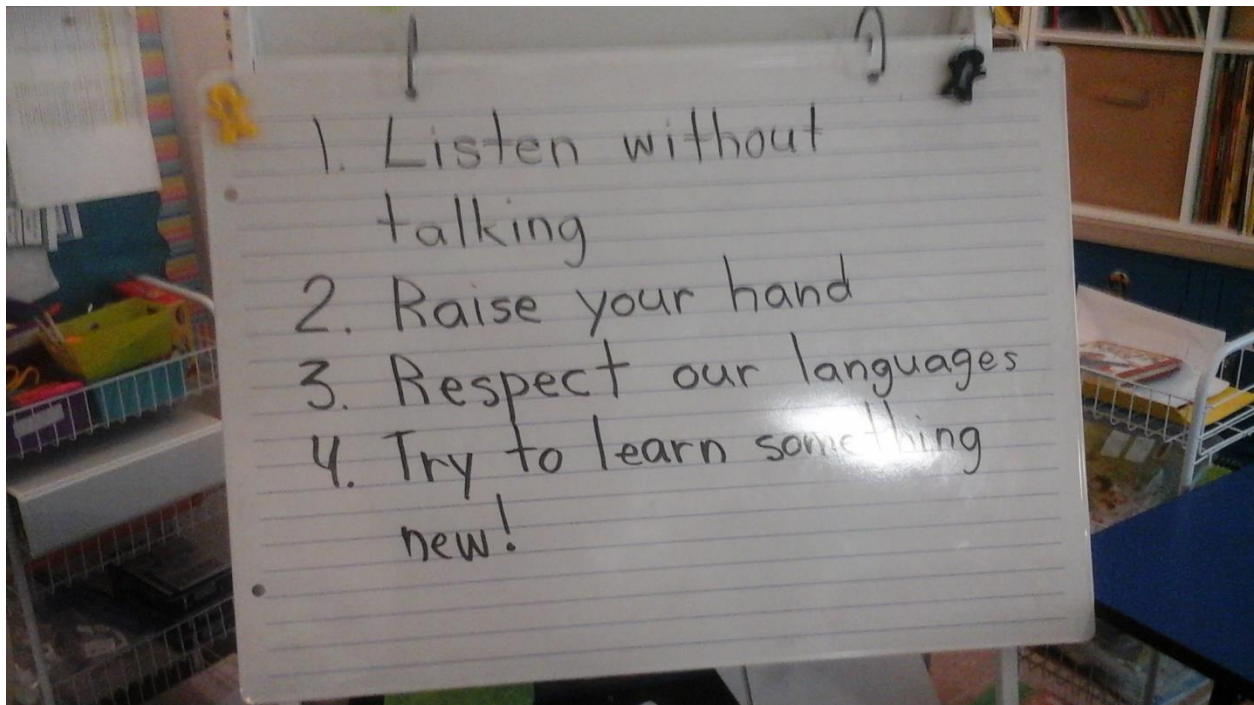 1. Listen without
talking
2. Raise your hand
3. Respect our languages
4. Try to learn something
new!